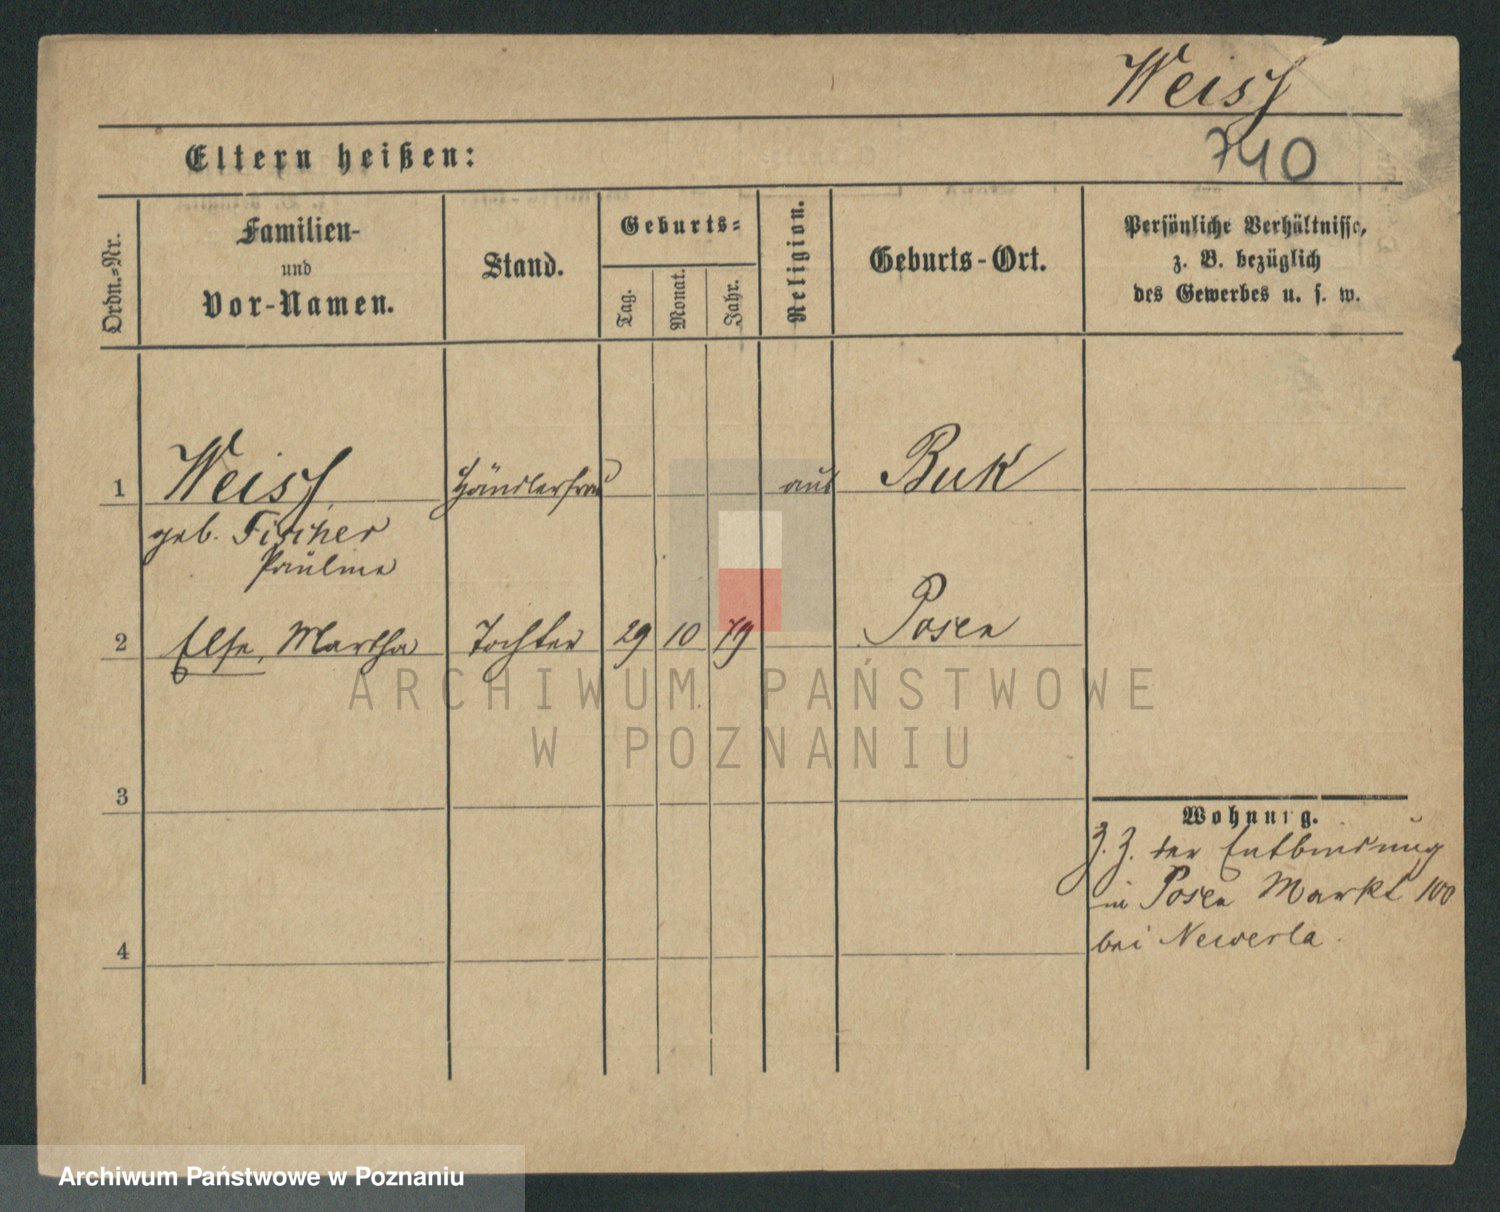 Weiss
740
Eltern heißen:
Ordn.-Nr.
Familien-
und
Vor-Namen.
Stand.
Geburts-
Tag.
Monat.
Jahr.
Religion.
Geburts-Ort.
Persönliche Verhältnisse,
z. B. bezüglich
des Gewerbes u. s. w.
1 Weiss Händlerfrau aus Buk
geb. Fischer
Pauline
2 Else, Martha Tochter 29 10 79 Posen
ARCHIWUM PAŃSTWOWE
W POZNANIU
3
Wohnung.
Z. Z. der Entbindung
in Posen Markt 100
bei Newerla.
4
Archiwum Państwowe w Poznaniu